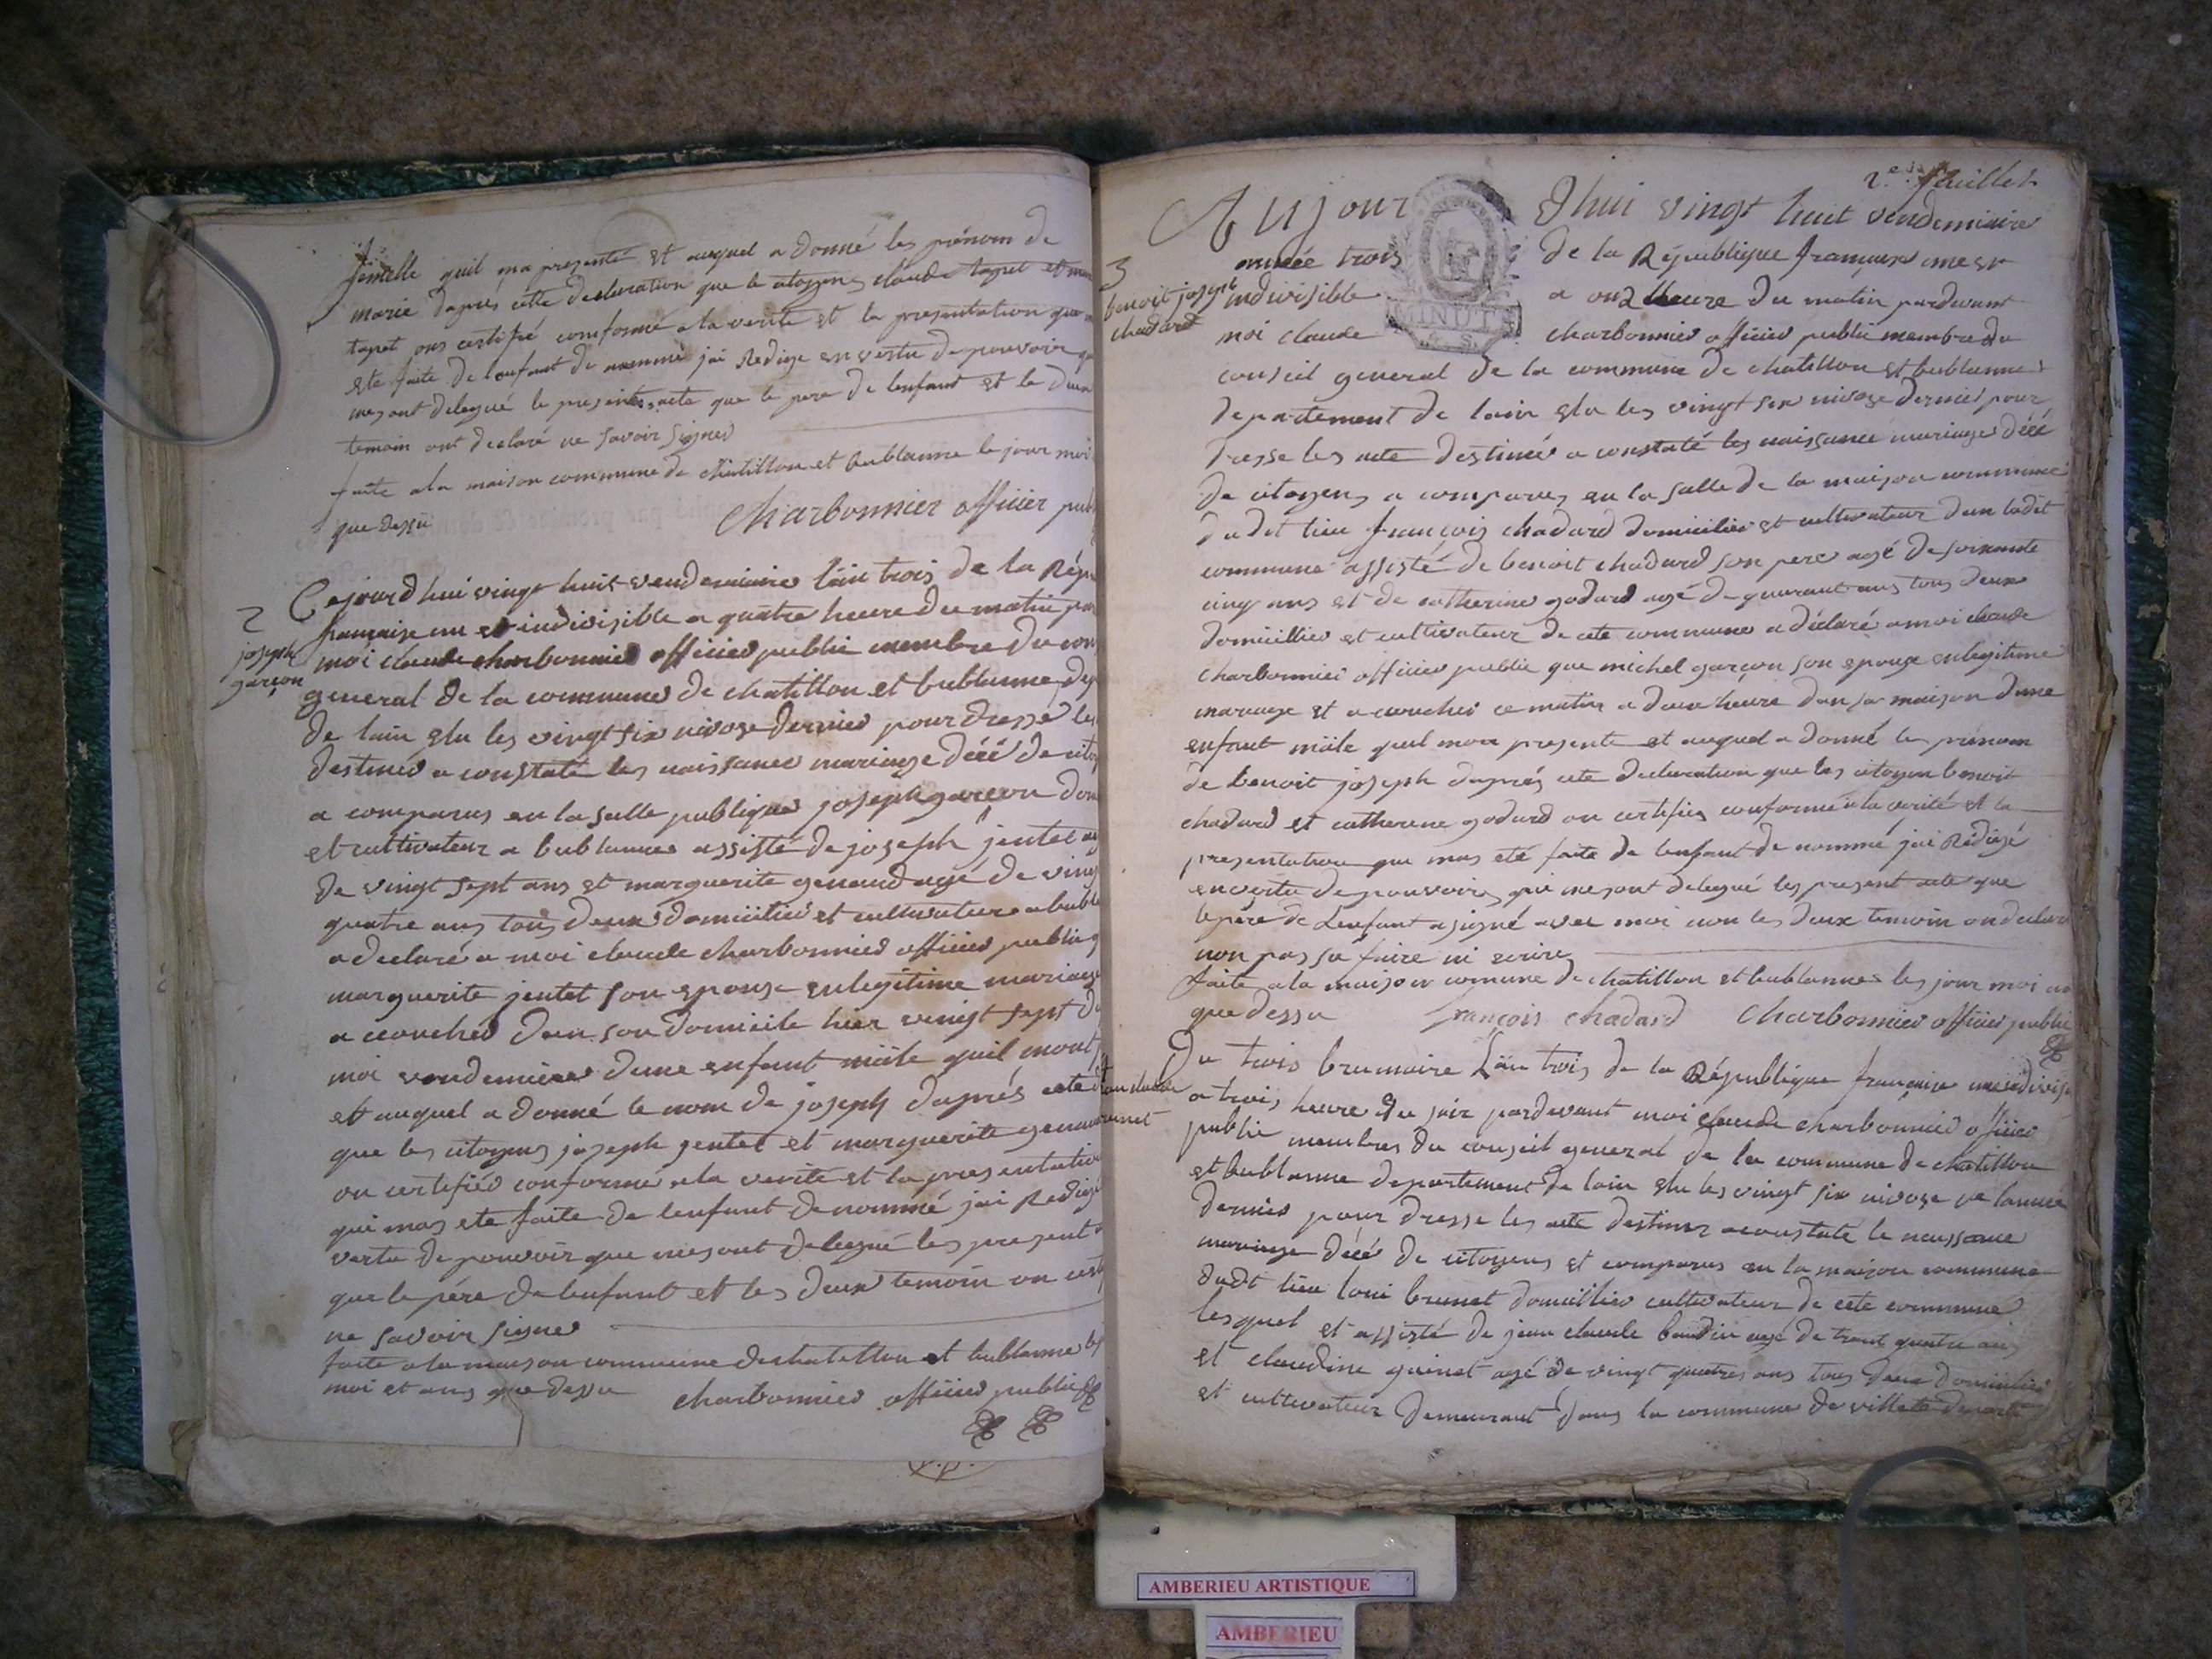 femelle quil ma presenté et auquel a donné les prénom de
marie daprés cette declaration que le citoyens claude tapet et
tapet ons certifié conforme a la verite et la presentation que
ete faite de lenfant de nommé jai Redige en vertu de pouvoir
mesont delegué le present acte que le pere de lenfant et le deux
temoin ont declaré ne savoir signer
faite ala maison commune de chatillon et bublanne le jour moi
que dessu Charbonnier officier publ
2
joseph
garçon
Cejourd hui vingt huit vendemiaire lan trois de la Rép
francaise une et indivisible a quatre heure du matin par
moi claude charbonnier officier public membre du con
general de la commune de chatillon et bublanne dep
de lain elu les vingt six nivose dernier pour dressé les
destinés a constaté les naissance mariage décé de cito
a comparus en la salle publique joseph garçon dom
et cultivateur a bublanne assisté de joseph jentet
de vingt sept ans et marguerite genaud agé de ving
quatre ans tous deux domicilié et cultivateur a bubl
a declaré a moi claude charbonnier officier public q
marguerite jentet son epouse enlegitime mariage
a accouché dans son domicile hier vingt sept du
moi vendemiaire dune enfant mâle quil mont
et auquel a donné le nom de joseph daprés cete
que les citoyens joseph gentet et marguerite genau
on certifiér conforme a la verite et la presentation
qui mas ete faite de lenfant denommé jai Redigé
vertu de pouvoir que mesont delegué les present
que le père de lenfant et les deux temoin on
ne savoir signer
faite a la maison commune de chatillon et bublanne
moi et ans que dessu charbonnier officier public
2e feuillet
Aujour dhui vingt huit vendemiaire
année trois de la République francaise une et
3
benoit joseph
chadard
indivisible a onze heure du matin pardevant
moi claude charbonnier officier public membre du
MINUT
conseil general de la commune de chatillon et bublanne
departement de lain elu les vingt six nivose dernier pour
dresse les acte destinée a constaté les naissance mariage décé
de citoyens a comparus en la salle de la maison commune
dudit lieu françois chadard domicilier et cultivateur dans ladit
commune assisté de benoit chadard son pere agé de soixante
cinq ans et de catherine godard agé de quarant ans tous deux
domicillier et cultivateur de cete commune a déclaré a moi claude
charbonnier officier public que michel garçon son epouse enlegitime
mariage et accouché ce matin a deux heure dan sa maison dune
enfant mâle quil mon presente et auquel a donné le prénom
de benoit joseph daprés cete declaration que les citoyen benoit
chadard et catherine godard on certifiés conforme a la verité et la
presentation que mas eté faite de lenfant de nommé jai Rédigé
envertu de pouvoirs qui mesont delegué les present acte que
le père de Lenfant a signé avec moi non les deux temoin on declaré
non pas su faire ni ecrire
faite ala maison comune de chatillon et bublanne les jour moi
que dessu françois chadard Charbonnier officier public
Du trois brumaire Lan trois de la République française
a trois heure du soir pardevant moi claude charbonnier officier
public membres du conseil general de la commune de chatillon
et bublanne departement de lain elu les vingt six nivose de lannée
dernier pour dresse les acte destinez a constate le naissance
mariage décé de citoyens et comparus en la maison commune
dudt lieu loui brunet domicillier cultivateur de cete commune
lesquel et assisté de jean claude baudin agé de trant quatre ans
et claudine guinet agé de vingt quatres ans tous deux domicilier
et cultivateur demeurant dans la commune de villete
AMBERIEU ARTISTIQUE
AMBERIEU